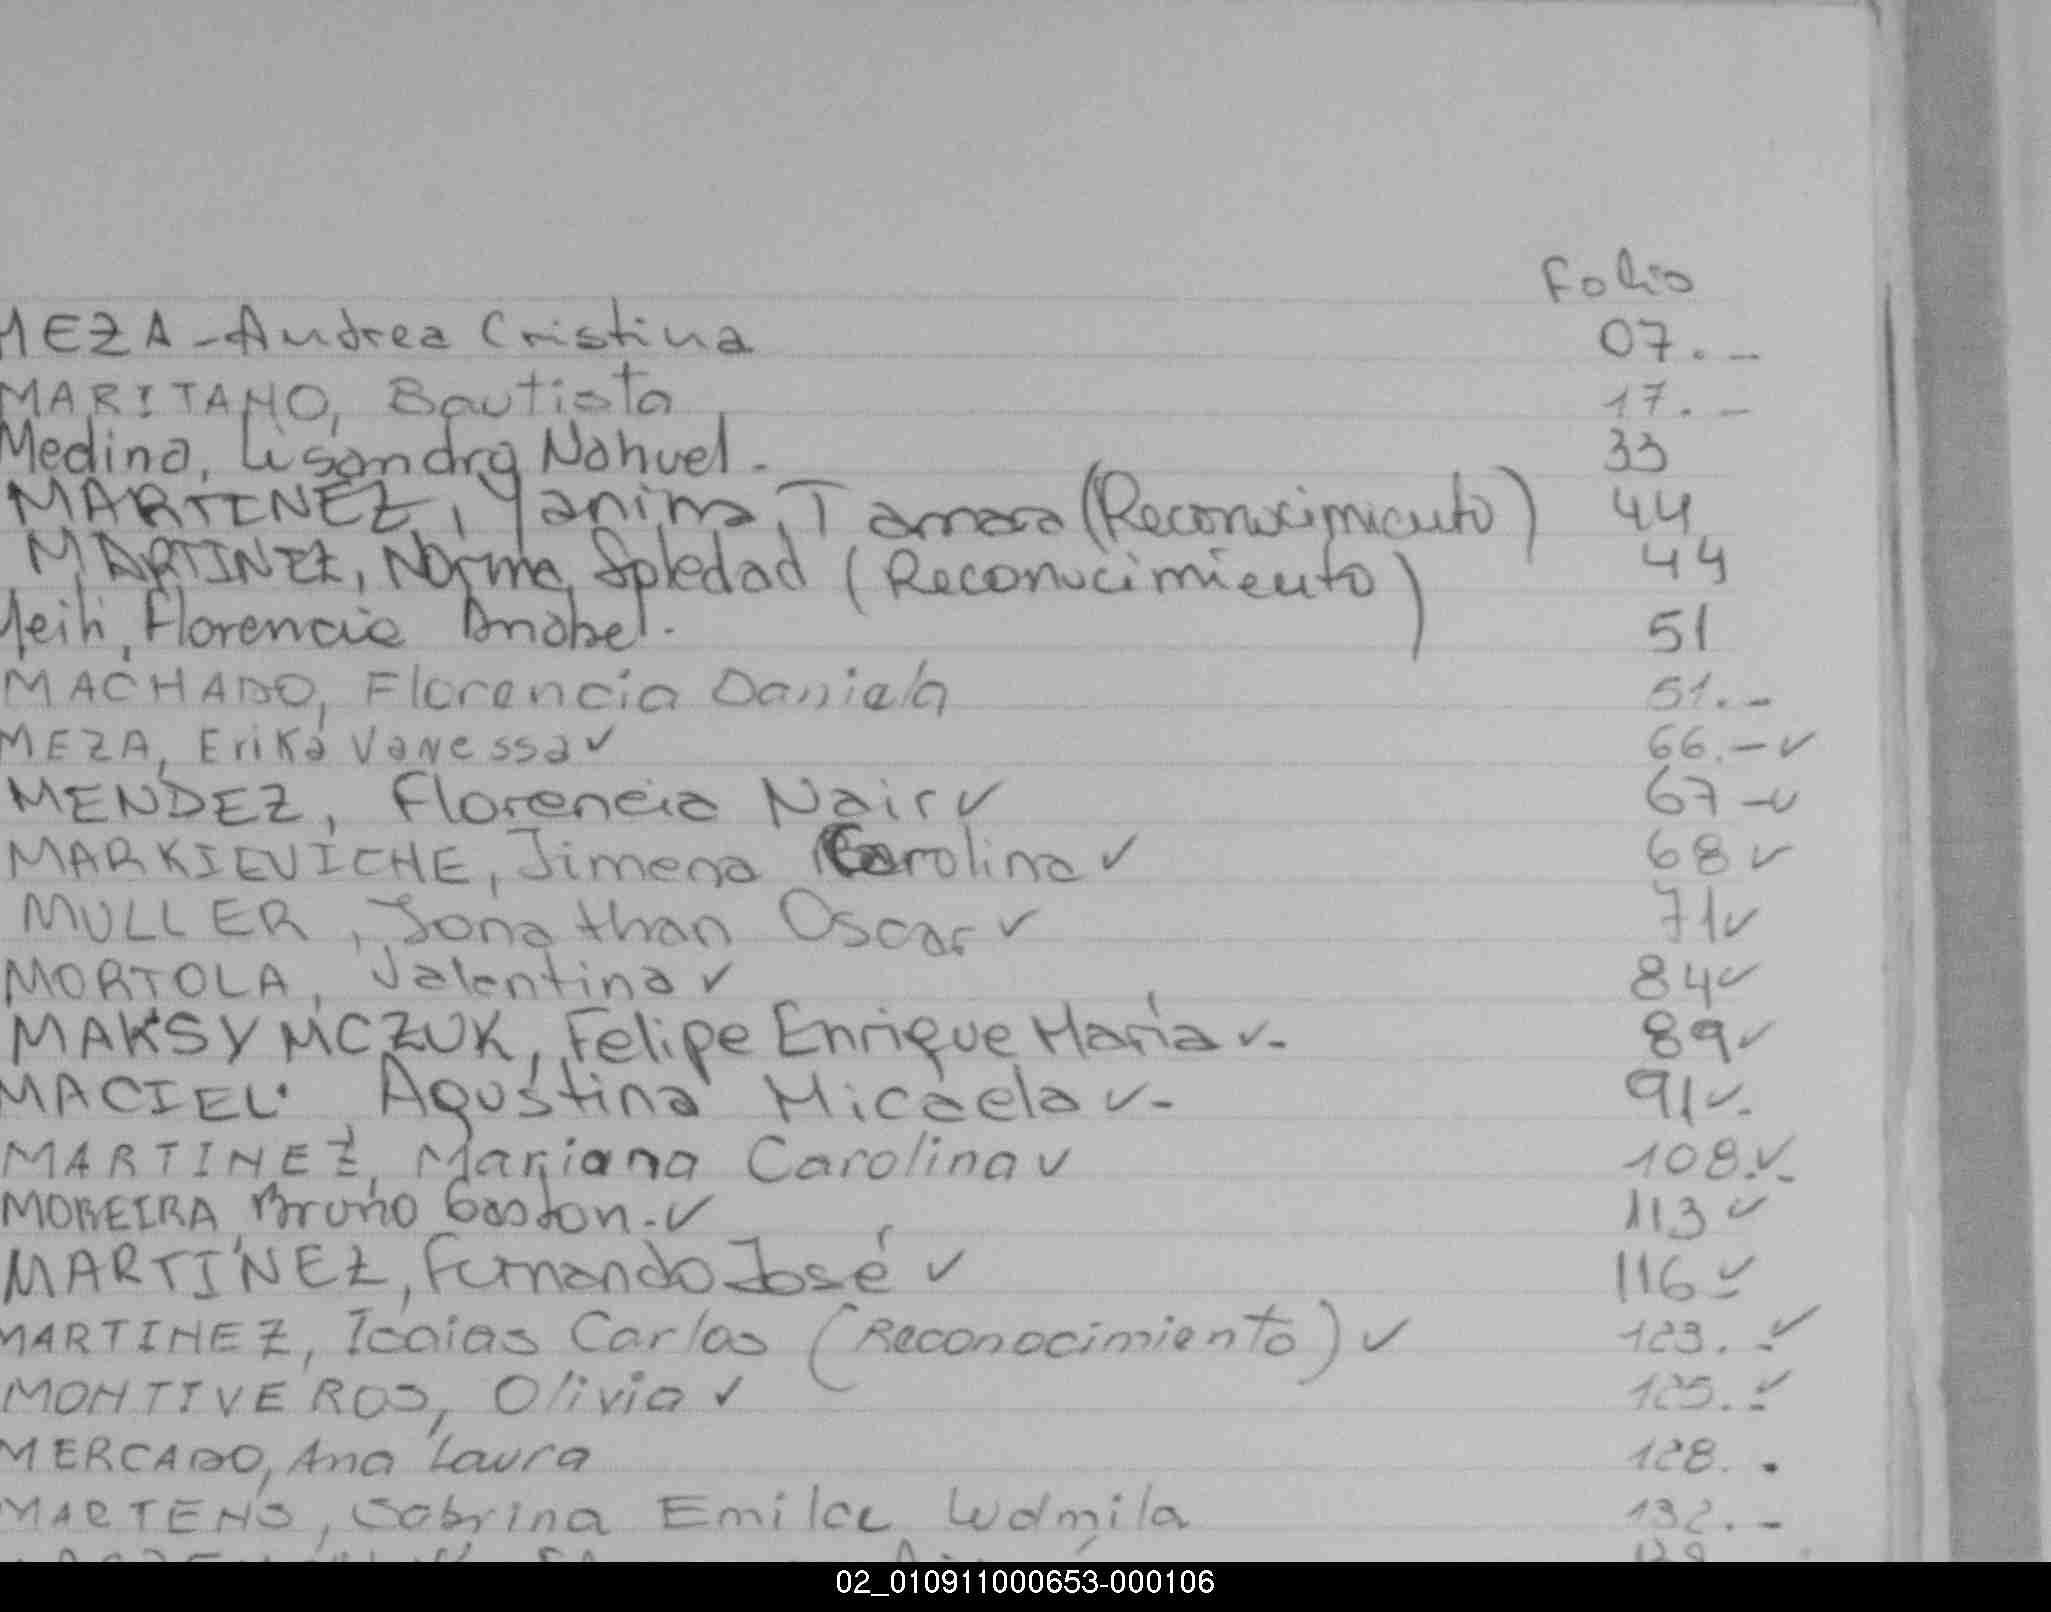 Folio
MEZA - Andrea Cristina 07. -
MARITANO, Bautista 17. -
Medina, Lisandro Nahuel. 33
MARTINEZ, Yanina Tamara (Reconocimiento) 44
MARTINEZ, Norma Soledad (Reconocimiento) 44
Florencia Anabel. 51
MACHADO, Florencia Daniela 51. -
MEZA, Erika Vanessa ✓ 66. - ✓
MENDEZ, Florencia Nair ✓ 67 - ✓
MARKIEVICHE, Jimena Carolina ✓ 68 ✓
MULLER, Jonathan Oscar ✓ 71 ✓
MORTOLA, Valentina ✓ 84 ✓
MAKSYMCZUK, Felipe Enrique María ✓ - 89 ✓
MACIEL. Agustina Micaela ✓ - 91 ✓.
MARTINEZ, Mariana Carolina ✓ 108. ✓ -
MOREIRA, Bruno Gaston. - ✓ 113 ✓
MARTINEZ, Fernando José ✓ 116 ✓
MARTINEZ, Isaias Carlos (Reconocimiento) ✓ 123. - ✓
MONTIVEROS, Olivia ✓ 125. - ✓
MERCADO, Ana Laura 128. .
MARTENS, Sabrina Emilce Ludmila 132. -
02_010911000653-000106